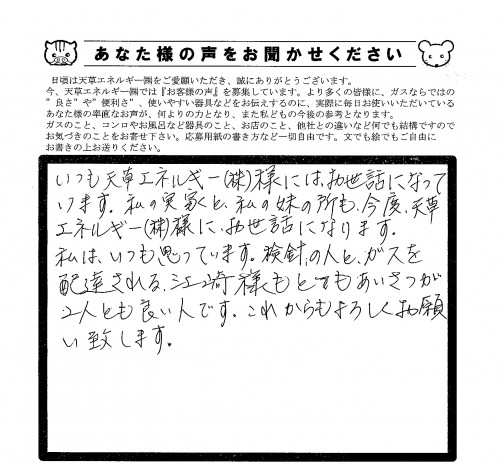 あなた様の声をお聞かせください
日頃は天草エネルギー㈱をご愛顧いただき、誠にありがとうございます。
今、天草エネルギー㈱では『お客様の声』を募集しています。より多くの皆様に、ガスならではの
”良さ”や”便利さ”、使いやすい器具などをお伝えするのに、実際に毎日お使いいただいている
あなた様の率直なお声が、何よりの力となり、また私どもの今後の参考となります。
ガスのこと、コンロやお風呂など器具のこと、お店のこと、他社との違いなど何でも結構ですので
お気づきのことをお寄せ下さい。応募用紙の書き方など一切自由です。文でも絵でもご自由に
お書きの上お送りください。
いつも天草エネルギー(株)様には、お世話になって
います。私の実家と、私の妹の所も、今度、天草
エネルギー(株)様に、お世話になります。
私は、いつも思っています。検針の人と、ガスを
配達される、江崎様もとてもあいさつが
2人とも良い人です。これからもよろしくお願
い致します。